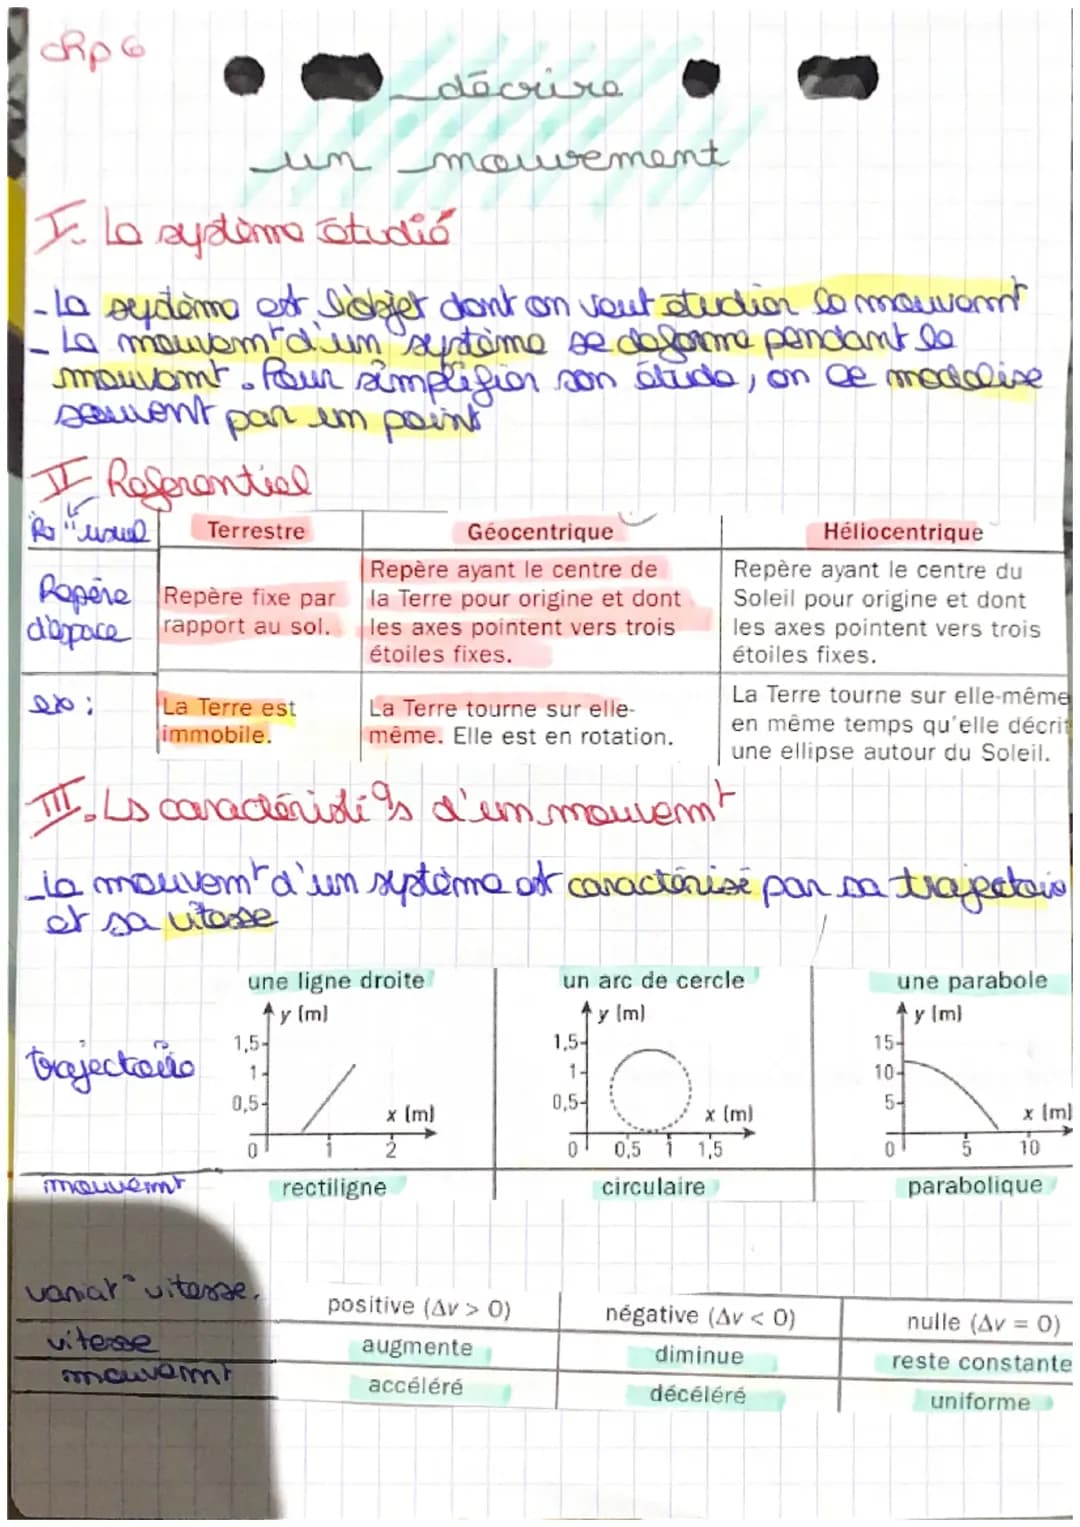 chp 6
décrire
un mouvement
I. Le système étudié
- Le système est l'objet dont on veut étudier le mouvemnt
- Le mouvemt d'un système se déforme pendant le
mouvemt. Pour simplifier son étude, on le modélise
souvent par un point
II Referentiel
Rº "usuel Terrestre Géocentrique Héliocentrique
Repère d'espace
Repère fixe par rapport au sol.
Repère ayant le centre de
la Terre pour origine et dont
les axes pointent vers trois
étoiles fixes.
Repère ayant le centre du
Soleil pour origine et dont
les axes pointent vers trois
étoiles fixes.
ex :
La Terre est
immobile.
La Terre tourne sur elle-
même. Elle est en rotation.
La Terre tourne sur elle-même
en même temps qu'elle décrit
une ellipse autour du Soleil.
III. Ls caractéristiqs d'un mouvemt
- Le mouvemt d'un système est caractérisé par sa trajectoire
et sa vitesse
une ligne droite un arc de cercle une parabole
trajectoire
y (m)
1,5
1
0,5
0 1 2
x (m)
y (m)
1,5
1
0,5
0 0,5 1 1,5
x (m)
y (m)
15
10
5
0 5 10
x (m)
mouvemnt rectiligne circulaire parabolique
variat° vitesse. positive (Δv > 0) négative (Δv < 0) nulle (Δv = 0)
vitesse augmente diminue reste constante
mouvemnt accéléré décéléré uniforme